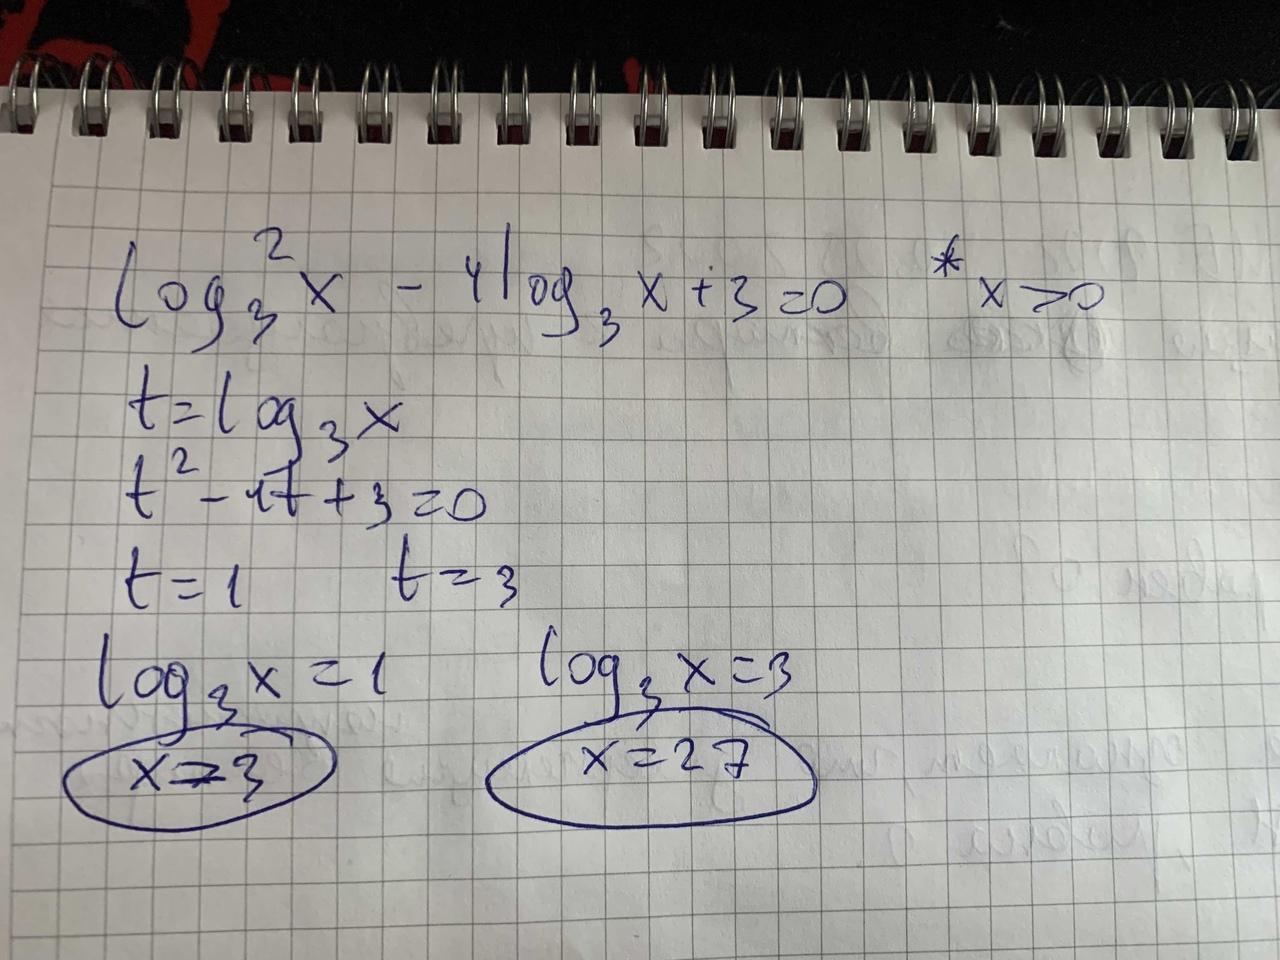 log₃²x - 4log₃x + 3 = 0 * x > 0
t = log₃x
t² - 4t + 3 = 0
t = 1 t = 3
log₃x = 1 log₃x = 3
x = 3 x = 27